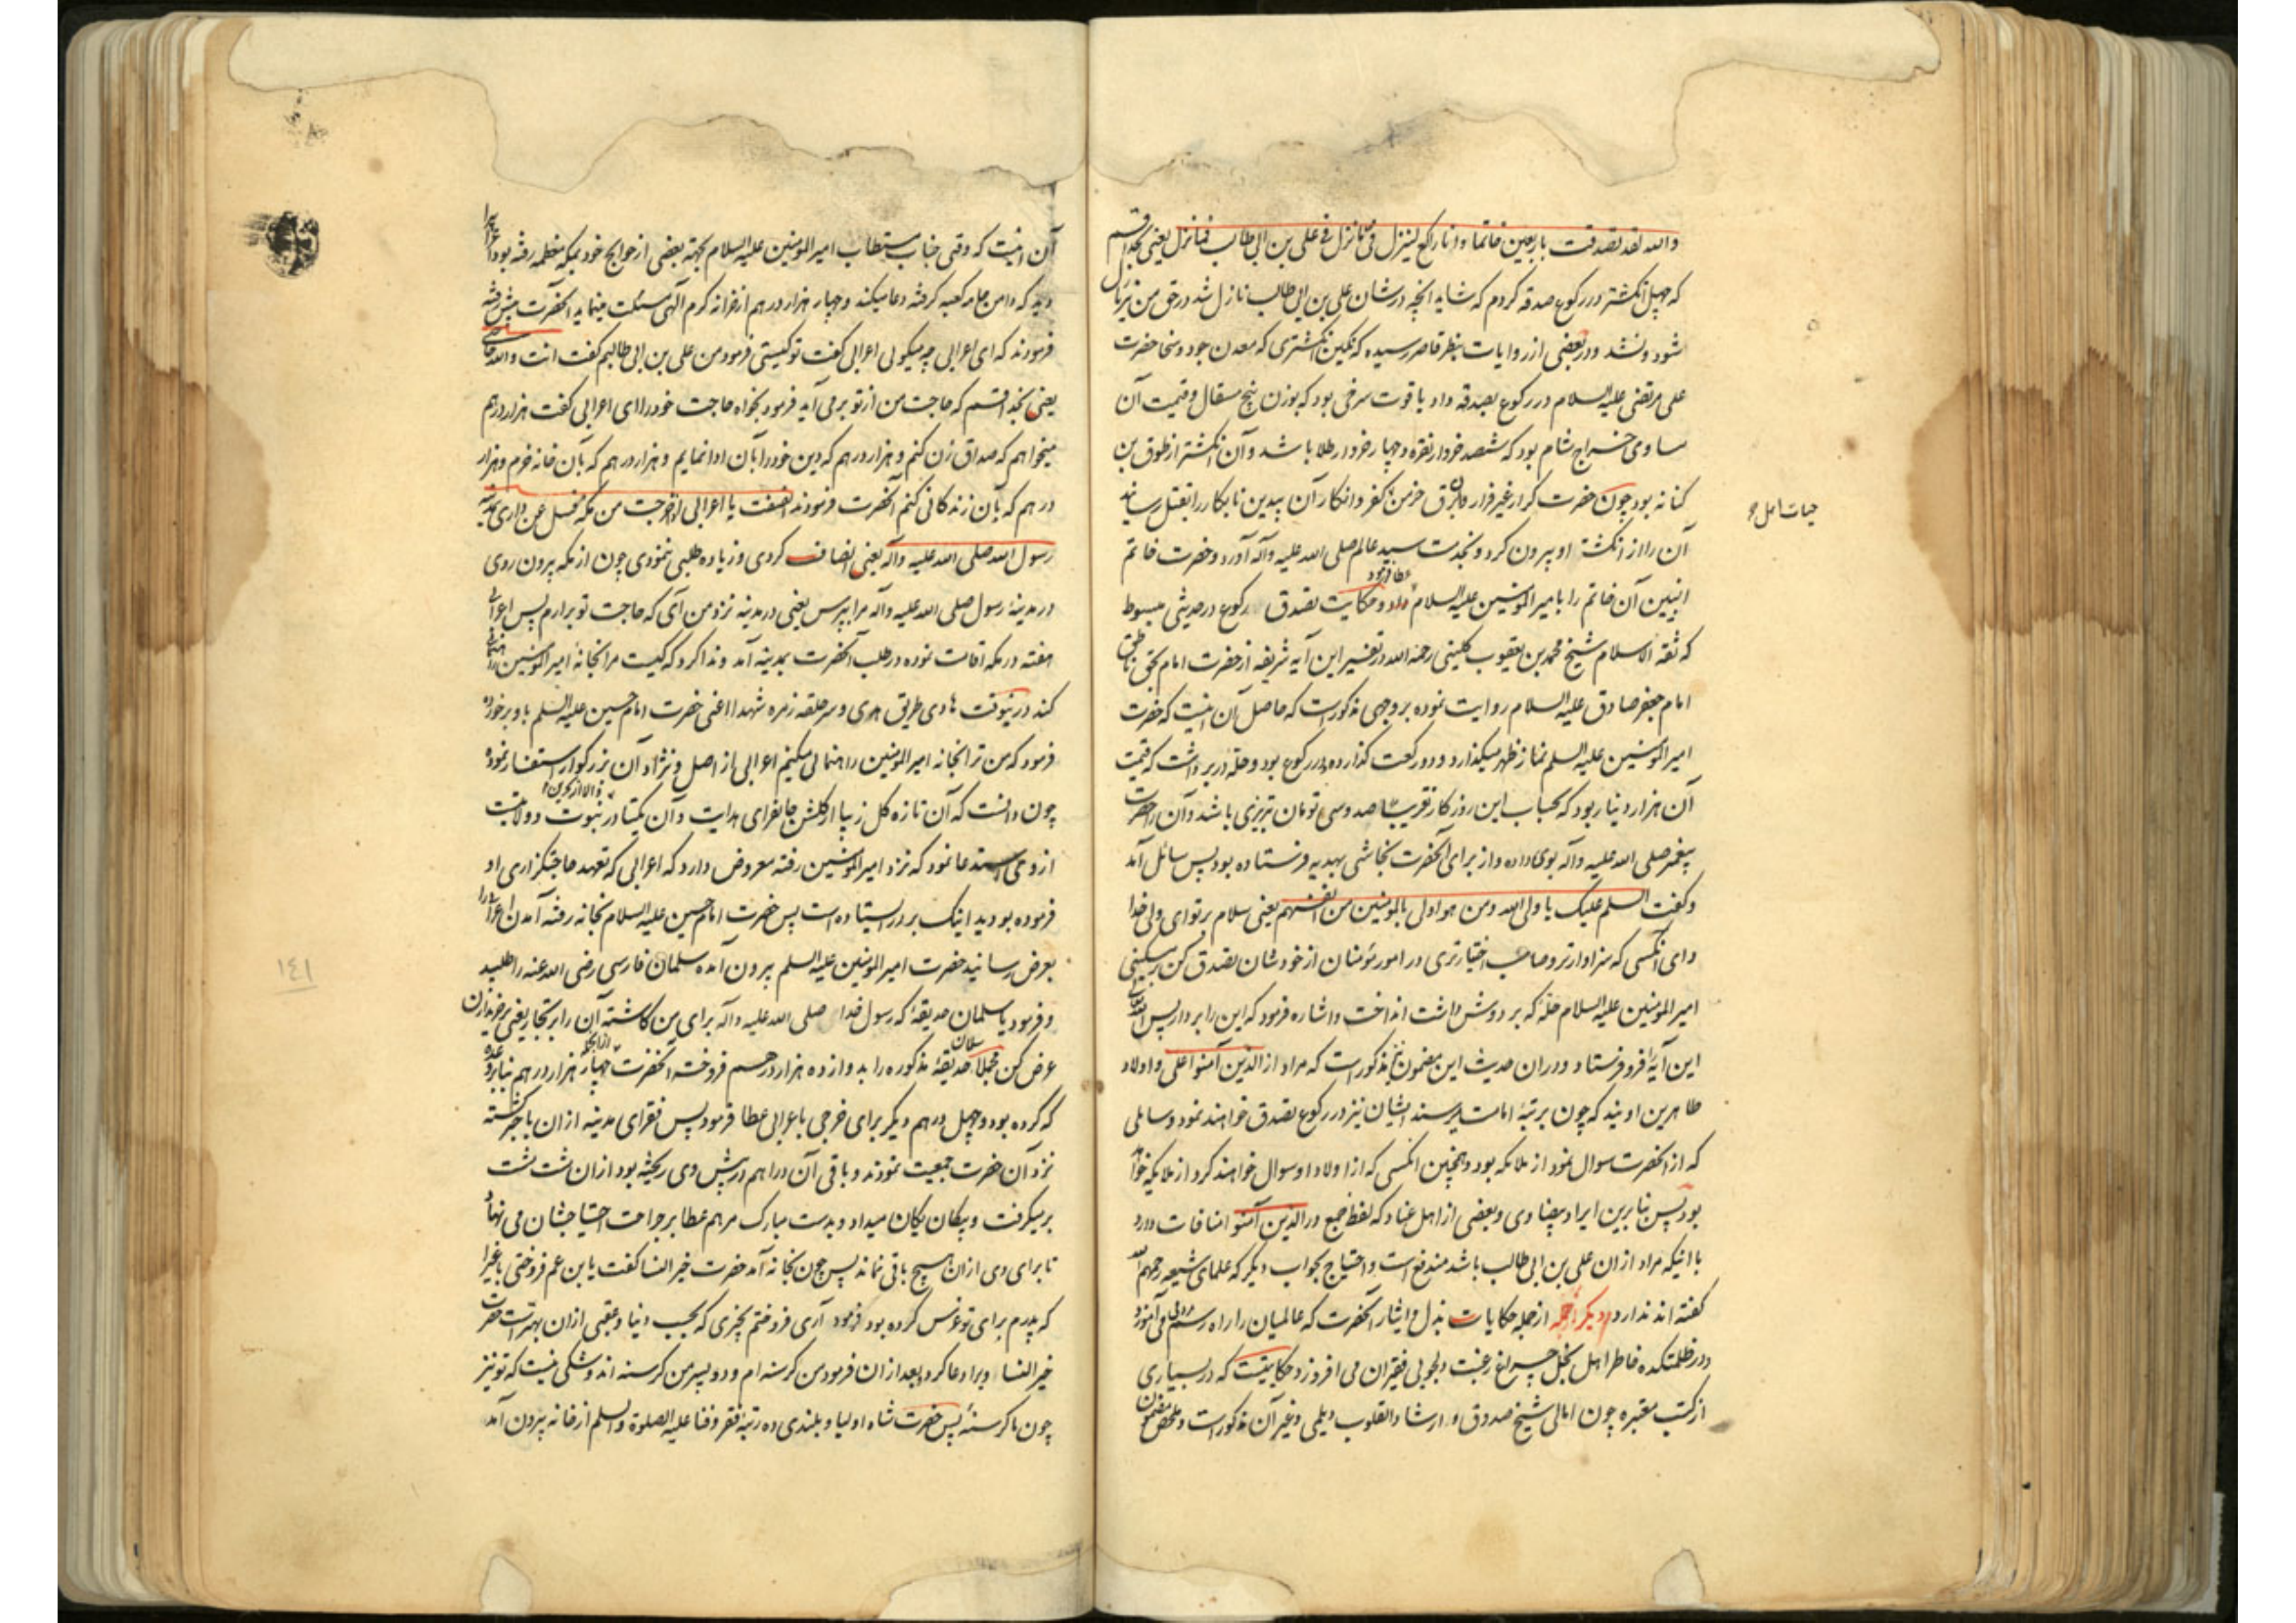 والله لقد تصدقت باربعین خاتما و انا راکع لینزل فی ما نزل فی علی بن ابی طالب فما نزل یعنی بخدا قسم
که چهل انکشتر در رکوع صدقه کردم که شاید انچه در شان علی بن ابی طالب نازل شد در حق من نیز نازل
شود و نشد و در بعضی از روایات بنظر قاصر رسیده که نکین انکشتری که معدن جود و سخا حضرت
علی مرتضی علیه السلام در رکوع بصدقه داد یاقوت سرخی بود که بوزن پنج مثقال و قیمت آن
مساوی خراج شام بود که ششصد خروار نقره و چهار خروار طلا باشد و آن انکشتر از طوق بن
کنانه بود چون حضرت کرار غیر فرار خرمن کفر و انکار آن بیدین نابکار را بقتل رسانید
آن را از انکشت او بیرون کرد و بخدمت سید عالم صلی الله علیه وآله آورد و حضرت خاتم
عطا فرمود
انبیین آن خاتم را با میرالمؤمنین علیه السلام داد و حکایت تصدق رکوع در حدیثی مبسوط
که ثقة الاسلام شیخ محمد بن یعقوب کلینی رحمه الله در تفسیر این آیه شریفه از حضرت امام بحق ناطق
امام جعفر صادق علیه السلام روایت نموده بر وجهی مذکور است که حاصل آن اینست که حضرت
امیرالمؤمنین علیه السلم نماز ظهر میکذارد و دو رکعت کذارده در رکوع بود و حله در بر داشت که قیمت
آن هزار دینار بود که بحساب این روزکار تقریبا صد و سی تومان تبریزی باشد و آن را حضرت
پیغمبر صلی الله علیه وآله بوی داده و از برای آنحضرت نجاشی بهدیه فرستاده بود پس سائل آمد
و کفت السلم علیک یا ولی الله و من هو اولی بالمؤمنین من انفسهم یعنی سلام بر تو ای ولی خدا
و ای آنکسی که سزاوارتر و صاحب اختیارتری در امور مؤمنان از خودشان تصدق کن بر مسکینی
امیرالمؤمنین علیه السلام حله که بر دوش داشت انداخت و اشاره فرمود که این را بردار پس الله تعالی
این آیه را فرو فرستاد و در ان حدیث این مضمون نیز مذکور است که مراد از الذین آمنوا علی و اولاد
طاهرین اویند که چون بمرتبۀ امامت برسند ایشان نیز در رکوع تصدق خواهند نمود و سایلی
که از آنحضرت سوال نمود از ملائکه بود و همچنین انکسی که از اولاد او سوال خواهند کرد از ملائکه خواهد
بود پس بنابرین ایراد بیضاوی و بعضی از اهل عناد که لفظ جمع در الذین آمنوا منافات دارد
با اینکه مراد از ان علی بن ابی طالب باشد مندفع است و احتیاج بجواب دیگر که علمای شیعه رحمهم الله
کفته اند ندارد دیکر از جمله حکایات بذل و ایثار آنحضرت که عالمیان را راه رسم می آموزد
و در ظلمتکده خاطر اهل بخل چراغ رغبت دلجویی فقیران می افروزد حکایتیست که در بسیاری
از کتب معتبره چون امالی شیخ صدوق و ارشاد القلوب دیلمی و غیر آن مذکور است و ملخص مضمون
آن اینست که وقتی جناب مستطاب امیرالمؤمنین علیه السلام بجهة بعضی از حوایج خود بمکه معظمه رفته بود اعرابی را
دید که دامن جامه کعبه کرفته دعا میکند و چهار هزار درهم از خزانه کرم الهی مسئلت مینماید انحضرت پیش رفته
فرمودند که ای اعرابی چه میکوئی اعرابی کفت تو کیستی فرمود من علی بن ابی طالبم کفت انت والله حاجتی
یعنی بخدا قسم که حاجت من از تو بر می آید فرمود بخواه حاجت خود را ای اعرابی کفت هزار درهم
میخواهم که صداق زن کنم و هزار درهم که دین خود را بآن ادا نمایم و هزار درهم که بآن خانه خرم و هزار
درهم که بآن زندکانی کنم آنحضرت فرمودند انصفت یا اعرابی اذا خرجت من مکه فسل عن داری بمدینة
رسول الله صلی الله علیه وآله یعنی انصاف کردی و زیاده طلبی ننمودی چون از مکه بیرون روی
در مدینۀ رسول صلی الله علیه وآله مرا بپرس یعنی در مدینه نزد من آی که حاجت تو برارم پس اعرابی
هفته در مکه اقامت نموده در طلب آنحضرت بمدینه آمد و ندا کرد که کیست مرا بخانۀ امیرالمؤمنین راهنمائی
کند در ینوقت هادی طریق هدی و سر حلقه زمره شهدا اعنی حضرت امام حسین علیه السلم باو برخورده
فرمود که من ترا بخانه امیرالمؤمنین راهنمائی میکنم اعرابی از اصل و نژاد آن بزرکوار استفسار نموده
چون دانست که آن تازه کل زیبا از کلشن جانفزای هدایت و آن یکتا در نبوت و ولایت
از وی استدعا نمود که نزد امیرالمؤمنین رفته معروض دارد که اعرابی که تعهد حاجتکزاری او
فرموده بودید اینک بر در ایستاده است پس حضرت امام حسین علیه السلام بخانه رفته آمدن اعرابی را
بعرض رسانید حضرت امیرالمؤمنین علیه السلم بیرون آمده سلمان فارسی رضی الله عنه را طلبید
و فرمود یا سلمان حدیقۀ که رسول خدا صلی الله علیه وآله برای من کاشته آن را بر تجار یعنی بر خریداران
عرض کن مجملا سلمان حدیقۀ مذکوره را بدوازده هزار درهم فروخت آنحضرت از آنجمله چهار هزار درهم بنا بر وعده
که کرده بود و چهل درهم دیکر برای خرجی باعرابی عطا فرمود پس فقرای مدینه ازان باخبر کشته
نزد آن حضرت جمعیت نمودند و باقی آن دراهم در پیش وی ریخته بود ازان مشت مشت
بر میکرفت و بیکان یکان میداد و بدست مبارک مرهم عطا بر جراحت احتیاجشان می نهاد
تا برای وی ازان هیچ باقی نماند پس چون بخانه آمد حضرت خیرالنسا کفت یا بن عم فروختی باغیرا
که پدرم برای تو غرس کرده بود فرمود آری فروختم بچیزی که بحسب دنیا و عقبی ازان بهتر است حضرت
خیرالنسا ویرا دعا کرد بعد ازان فرمود من کرسنه ام و دو پسر من کرسنه اند و شکی نیست که تو نیز
چون ما کرسنۀ پس حضرت شاه اولیا و بلندی ده رتبۀ فقر و فنا علیه الصلوة والسلم از خانه بیرون آمد
١٤١